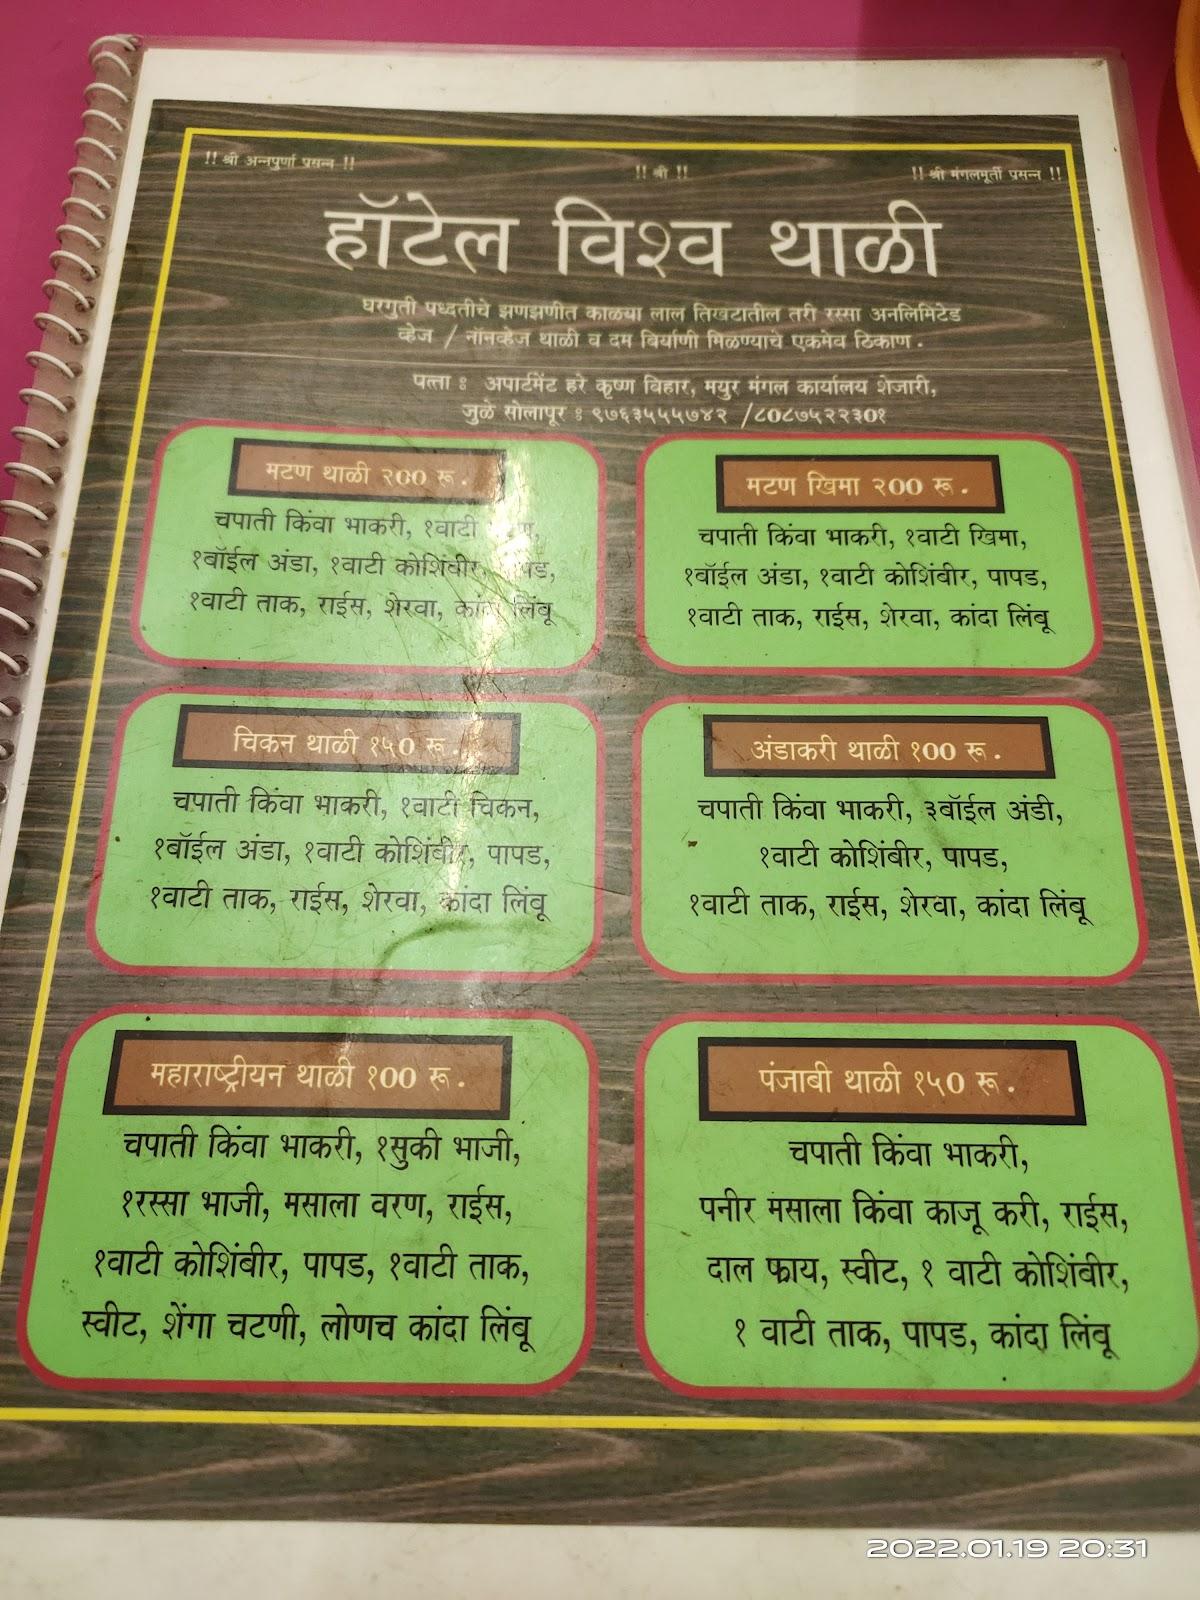 !! श्री अन्नपुर्णा प्रसन्न !!
!! श्री !!
!! श्री मंगलमूर्ती प्रसन्न !!
हॉटेल विश्व थाळी
घरगुती पध्दतीचे झणझणीत काळया लाल तिखटातील तरी रस्सा अनलिमिटेड
व्हेज / नॉनव्हेज थाळी व दम बिर्याणी मिळण्याचे एकमेव ठिकाण.
पत्ता : अपार्टमेंट हरे कृष्ण विहार, मयुर मंगल कार्यालय शेजारी,
जुळे सोलापूर : ९७६३५५५७४२ /८०८७५२२३०१
मटण थाळी २०० रू.
चपाती किंवा भाकरी, १वाटी
१बॉईल अंडा, १वाटी कोशिंबीर,
१वाटी ताक, राईस, शेरवा, कांदा लिंबू
मटण खिमा २०० रू.
चपाती किंवा भाकरी, १वाटी खिमा,
१बॉईल अंडा, १वाटी कोशिंबीर, पापड,
१वाटी ताक, राईस, शेरवा, कांदा लिंबू
चिकन थाळी १५० रू.
चपाती किंवा भाकरी, १वाटी चिकन,
१बॉईल अंडा, १वाटी कोशिंबीर, पापड,
१वाटी ताक, राईस, शेरवा, कांदा लिंबू
अंडाकरी थाळी १०० रू.
चपाती किंवा भाकरी, ३बॉईल अंडी,
१वाटी कोशिंबीर, पापड,
१वाटी ताक, राईस, शेरवा, कांदा लिंबू
महाराष्ट्रीयन थाळी १०० रू.
चपाती किंवा भाकरी, १सुकी भाजी,
१रस्सा भाजी, मसाला वरण, राईस,
१वाटी कोशिंबीर, पापड, १वाटी ताक,
स्वीट, शेंगा चटणी, लोणच कांदा लिंबू
पंजाबी थाळी १५० रू.
चपाती किंवा भाकरी,
पनीर मसाला किंवा काजू करी, राईस,
दाल फ्राय, स्वीट, १ वाटी कोशिंबीर,
१ वाटी ताक, पापड, कांदा लिंबू
2022.01.19 20:31